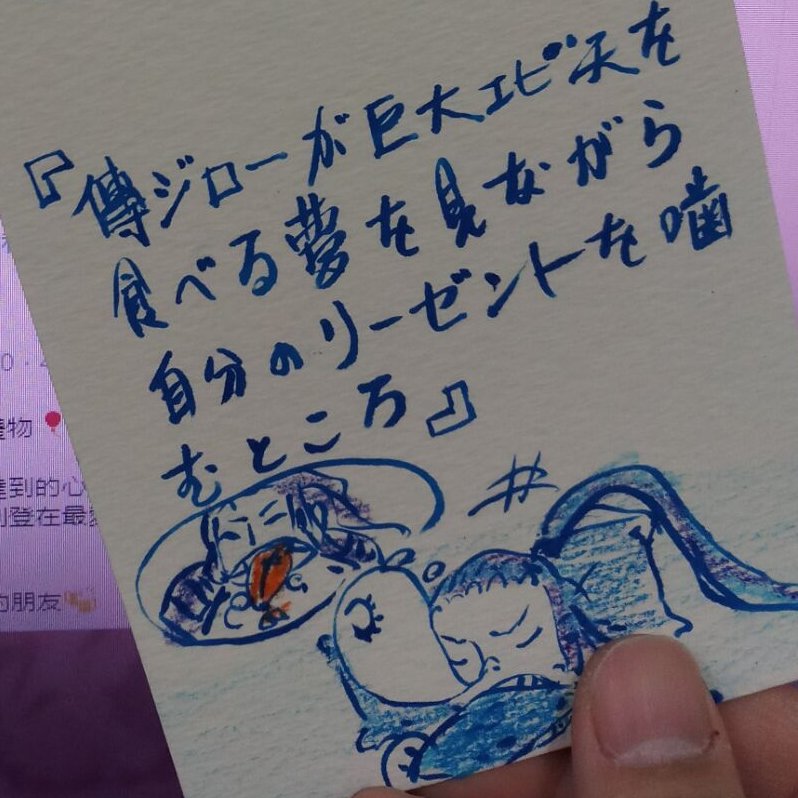 『傳ジローが巨大エビ天を
食べる夢を見ながら
自分のリーゼントを噛
むところ』
物
達到的心
登在最
的朋友